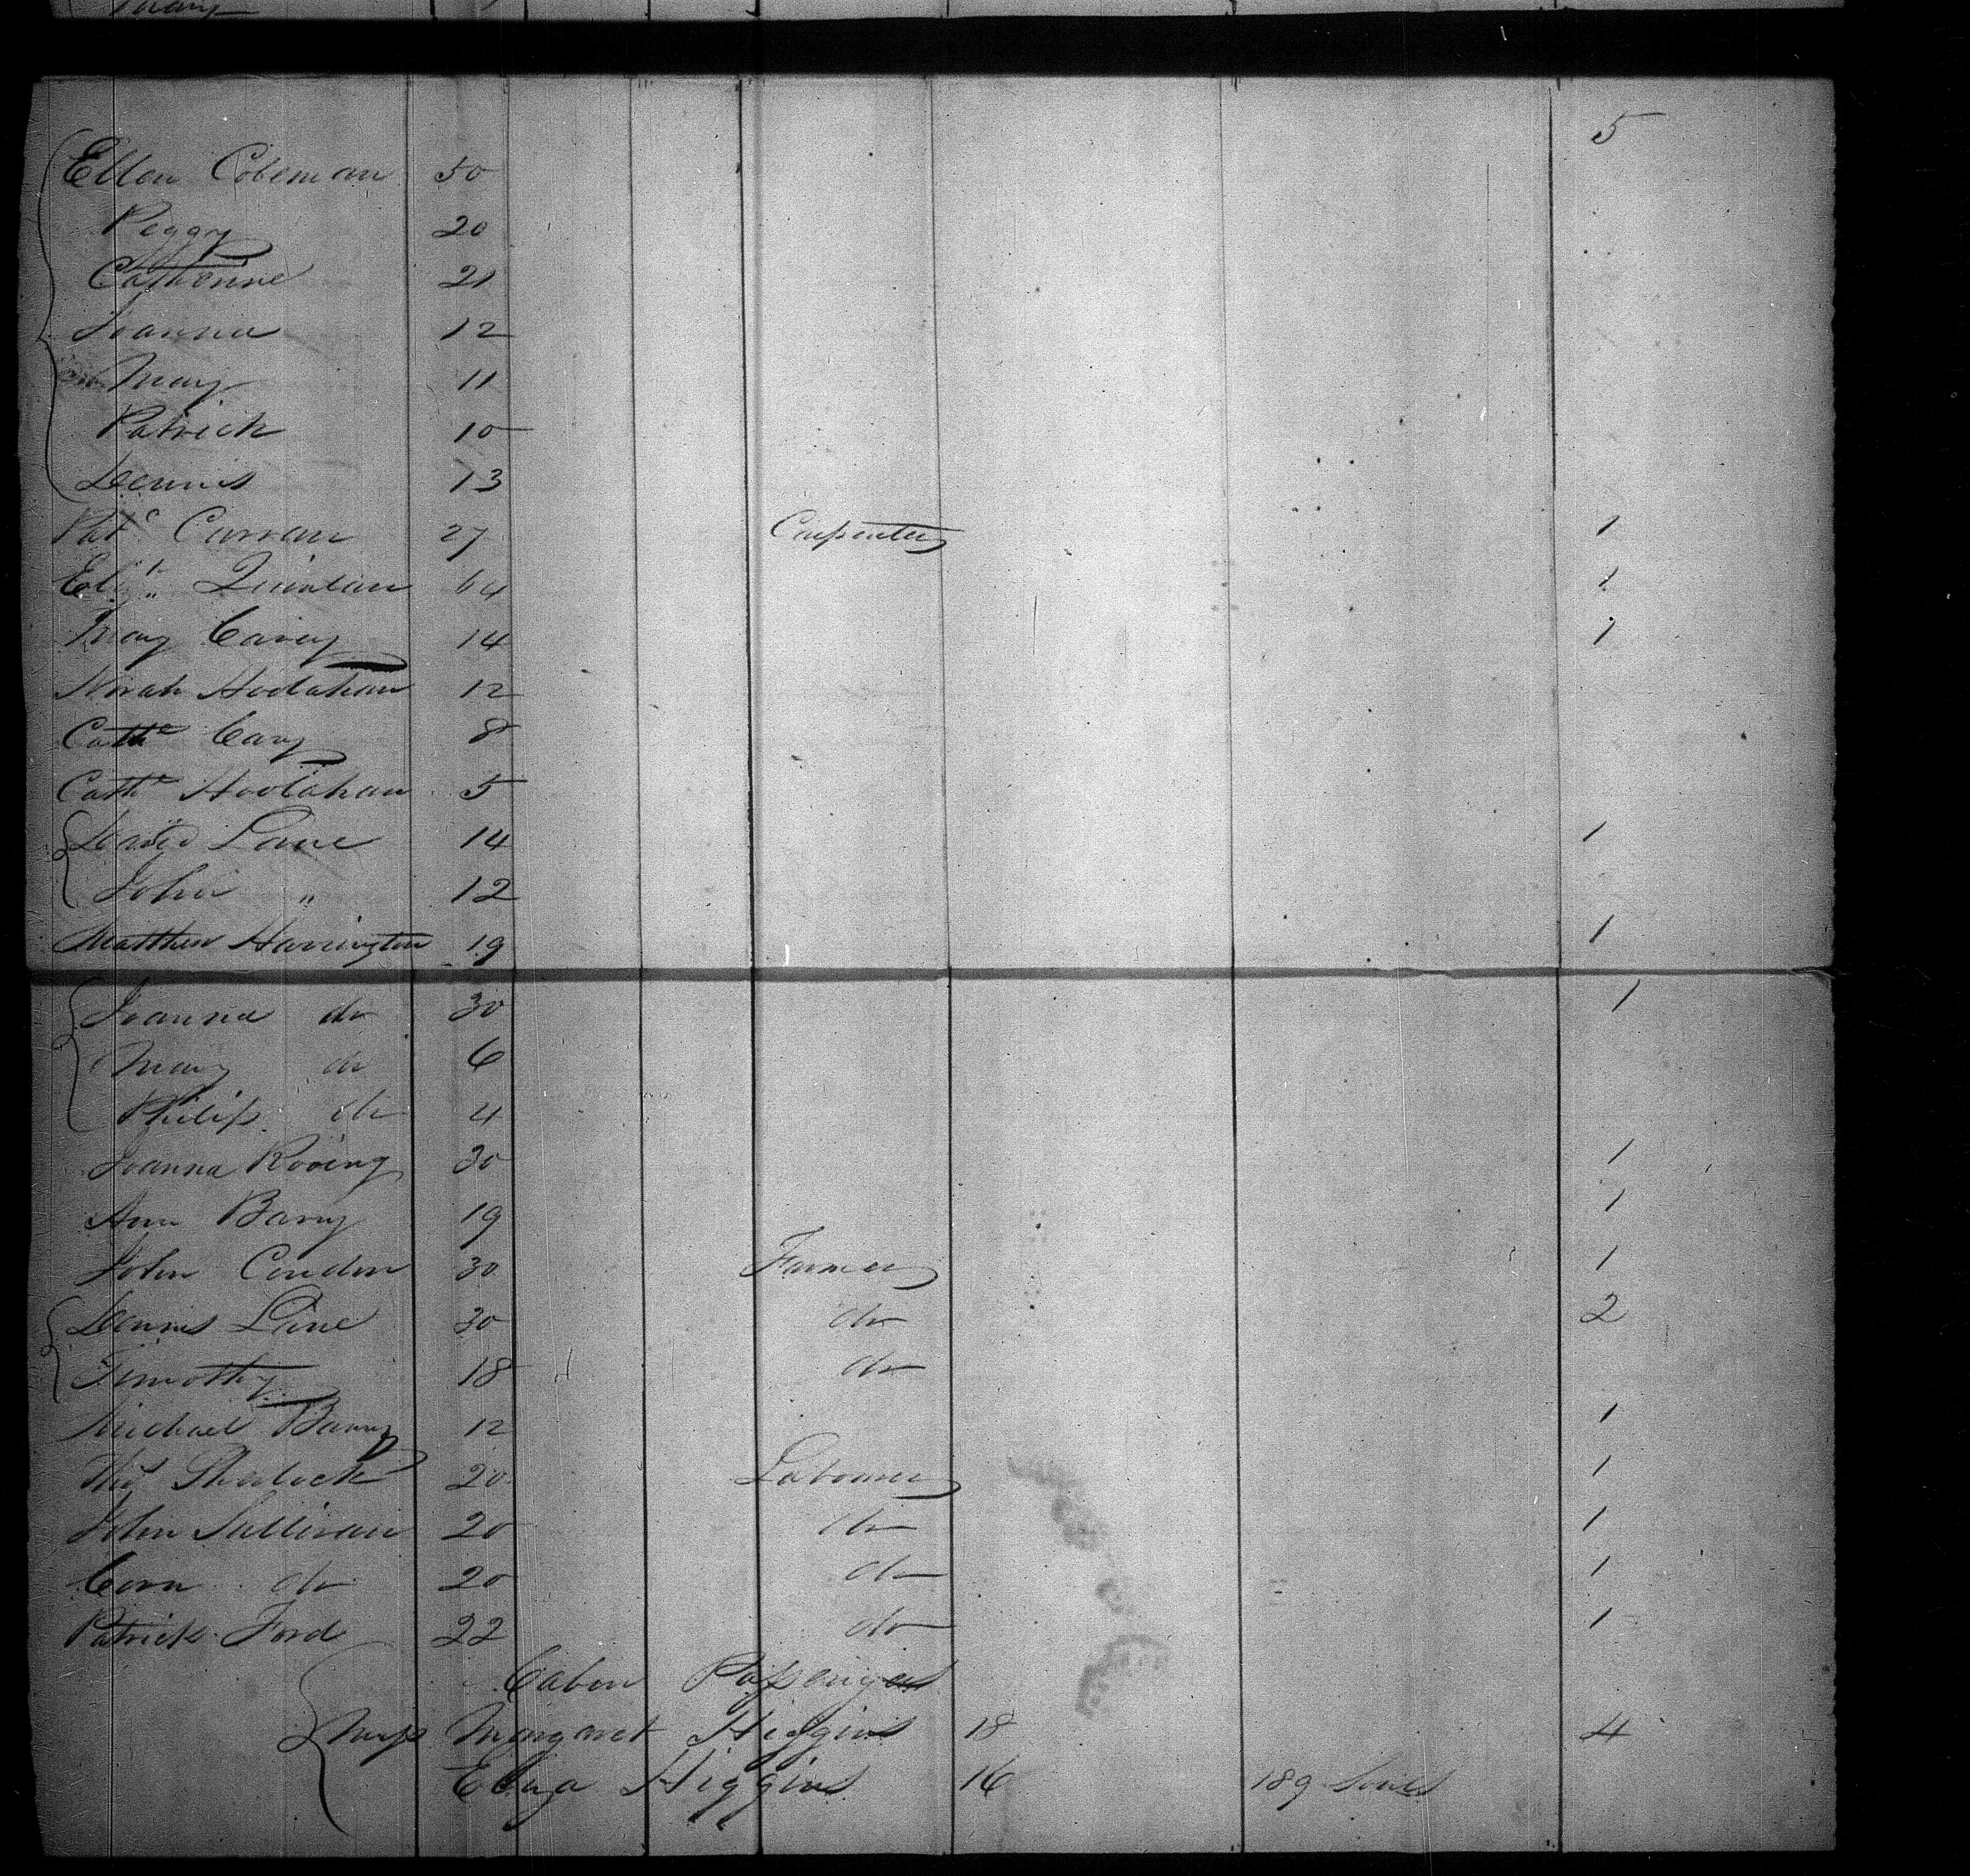 Mary
5
Ellen Coleman 50
Peggy 20
Catherine 21
Joanna 12
Mary 11
Patrick 10
Dennis 13
Patk Curran 27 Carpenter 1
Elizth Quinlan 64 1
Mary Carey 14 1
Norah Hoolahan 12
Cathe Cary 8
Cathe Hoolahan 5
David Lane 14 1
John " 12
Matthew Harrington 19 1
Joanna do 30 1
Mary do 6
Philip do 4
Joanna 30 1
Ann Barry 19 1
John Condon 30 Farmer 1
Dennis Line 30 do 2
Timothy 18 do
Michael Barry 12 1
Thos Sherlock 20 Labourer 1
John Sullivan 20 do 1
Corn do 20 do 1
Patrick Ford 22 do 1
Cabin Passengers
Miss Margaret Higgins 18 4
Eliza Higgins 16 189 Souls